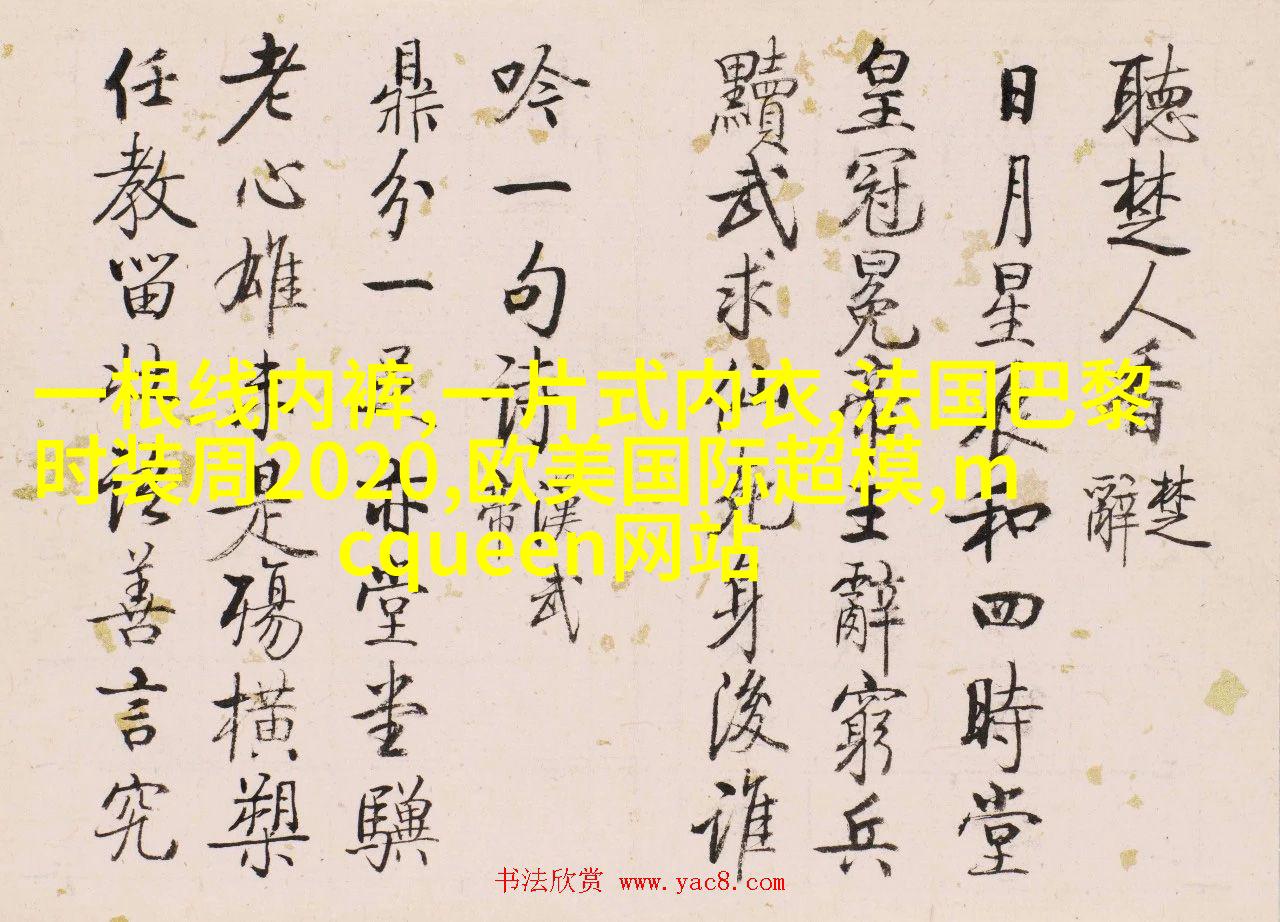 聽楚人香
楚辭
日月星辰和四時堂
皇冠冕帝王辭窮兵
黷武求仙死身後誰
吟一句詩
漢武帝
鼎分一足亦堂堂驥
老心雄是殤橫槊
任教留語善言究
一根线内裤,一片式内衣,法国巴黎
时装周2020,欧美国际超模,m
cqueen网站
书法欣赏 www.yac8.com